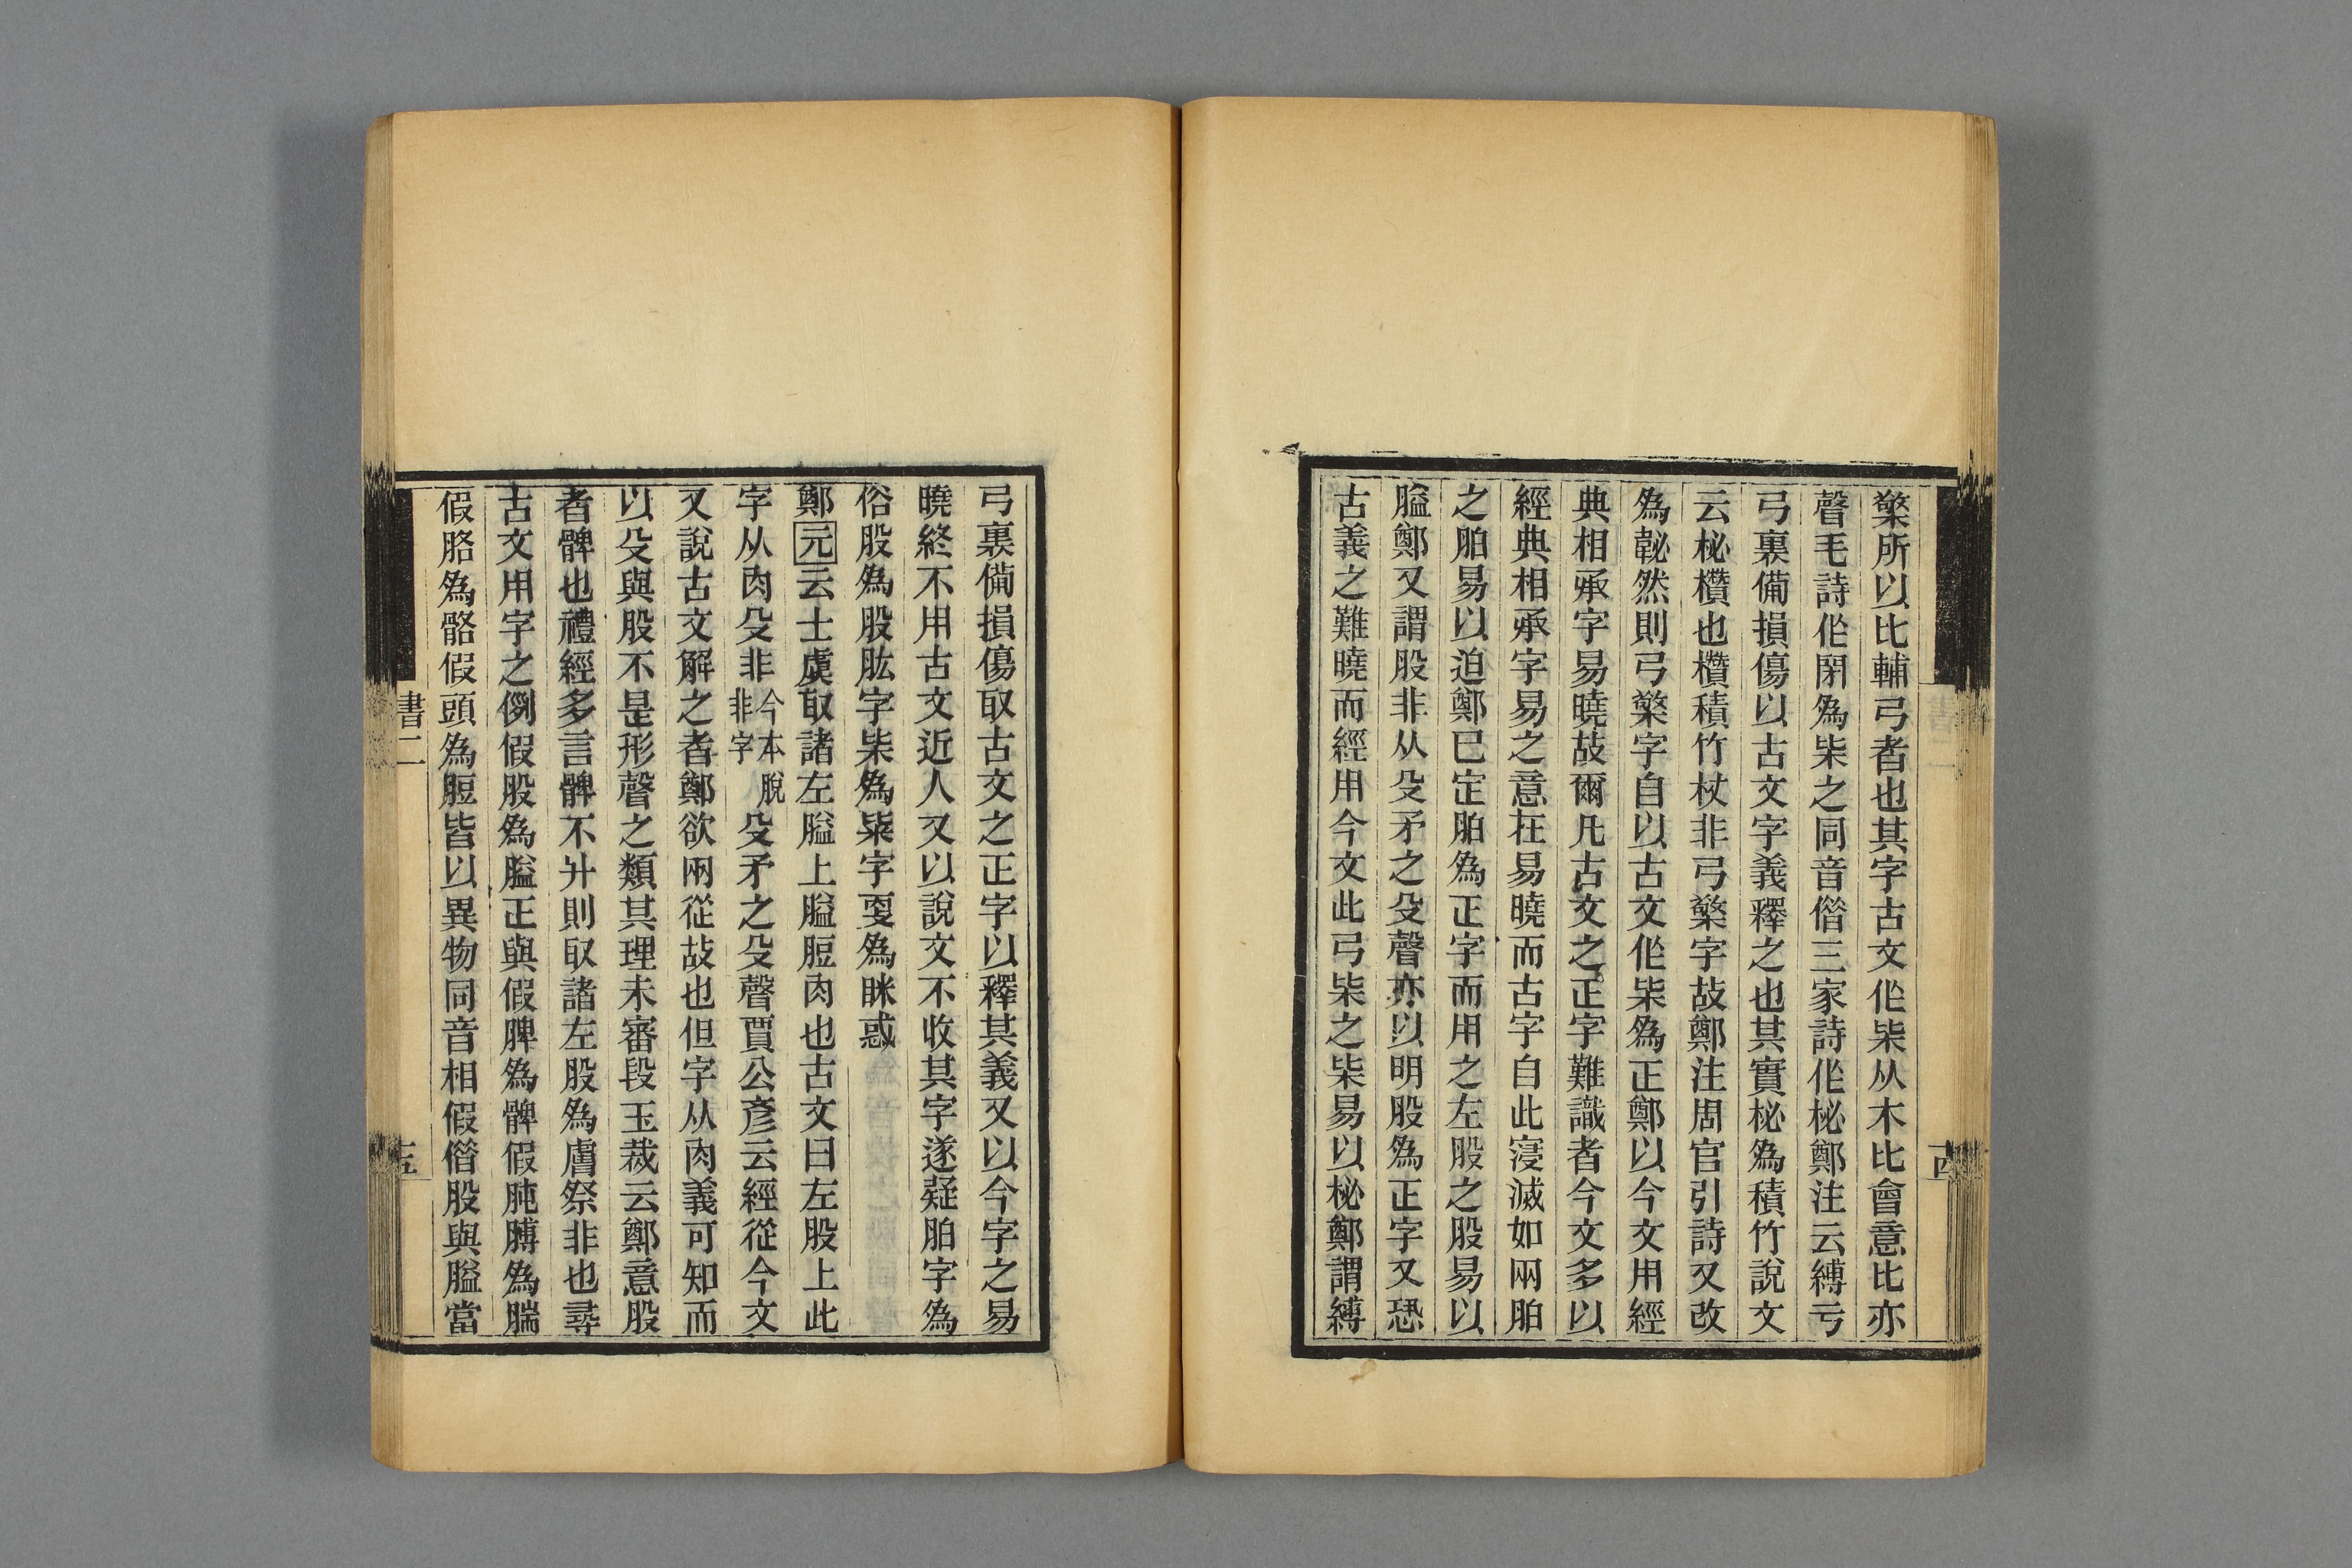 檠所以比輔弓者也其字古文作枈从木比會意比亦
聲毛詩作閉為枈之同音借三家詩作柲鄭注云縛亏
弓裏備損傷以古文字義釋之也其實柲為積竹說文
云柲欑也欑積竹杖非弓檠字故鄭注周官引詩又改
為䪐然則弓檠字自以古文作枈為正鄭以今文用經
典相承字易曉故爾凡古文之正字難識者今文多以
經典相承字易之意在易曉而古字自此寖滅如兩胉
之胉易以迫鄭已定胉為正字而用之左股之股易以
膉鄭又謂股非从殳矛之殳聲亦以明股為正字又恐
古義之難曉而經用今文此弓枈之枈易以柲鄭謂縛
弓裏備損傷取古文之正字以釋其義又以今字之易
曉終不用古文近人又以說文不收其字遂疑胉字為
俗股為股肱字枈為粊字叓為眯惑
鄭元云士虞取諸左膉上膉脰肉也古文曰左股上此
字从肉殳非今本脫非字殳矛之殳聲賈公彥云經從今文
又說古文解之者鄭欲兩從故也但字从肉義可知而
以殳與股不是形聲之類其理未審段玉裁云鄭意股
者髀也禮經多言髀不升則取諸左股為膚祭非也尋
古文用字之例假股為膉正與假脾為髀假肫膞為腨
假胳為骼假頭為脰皆以異物同音相假借股與膉當
書二
十五
十四